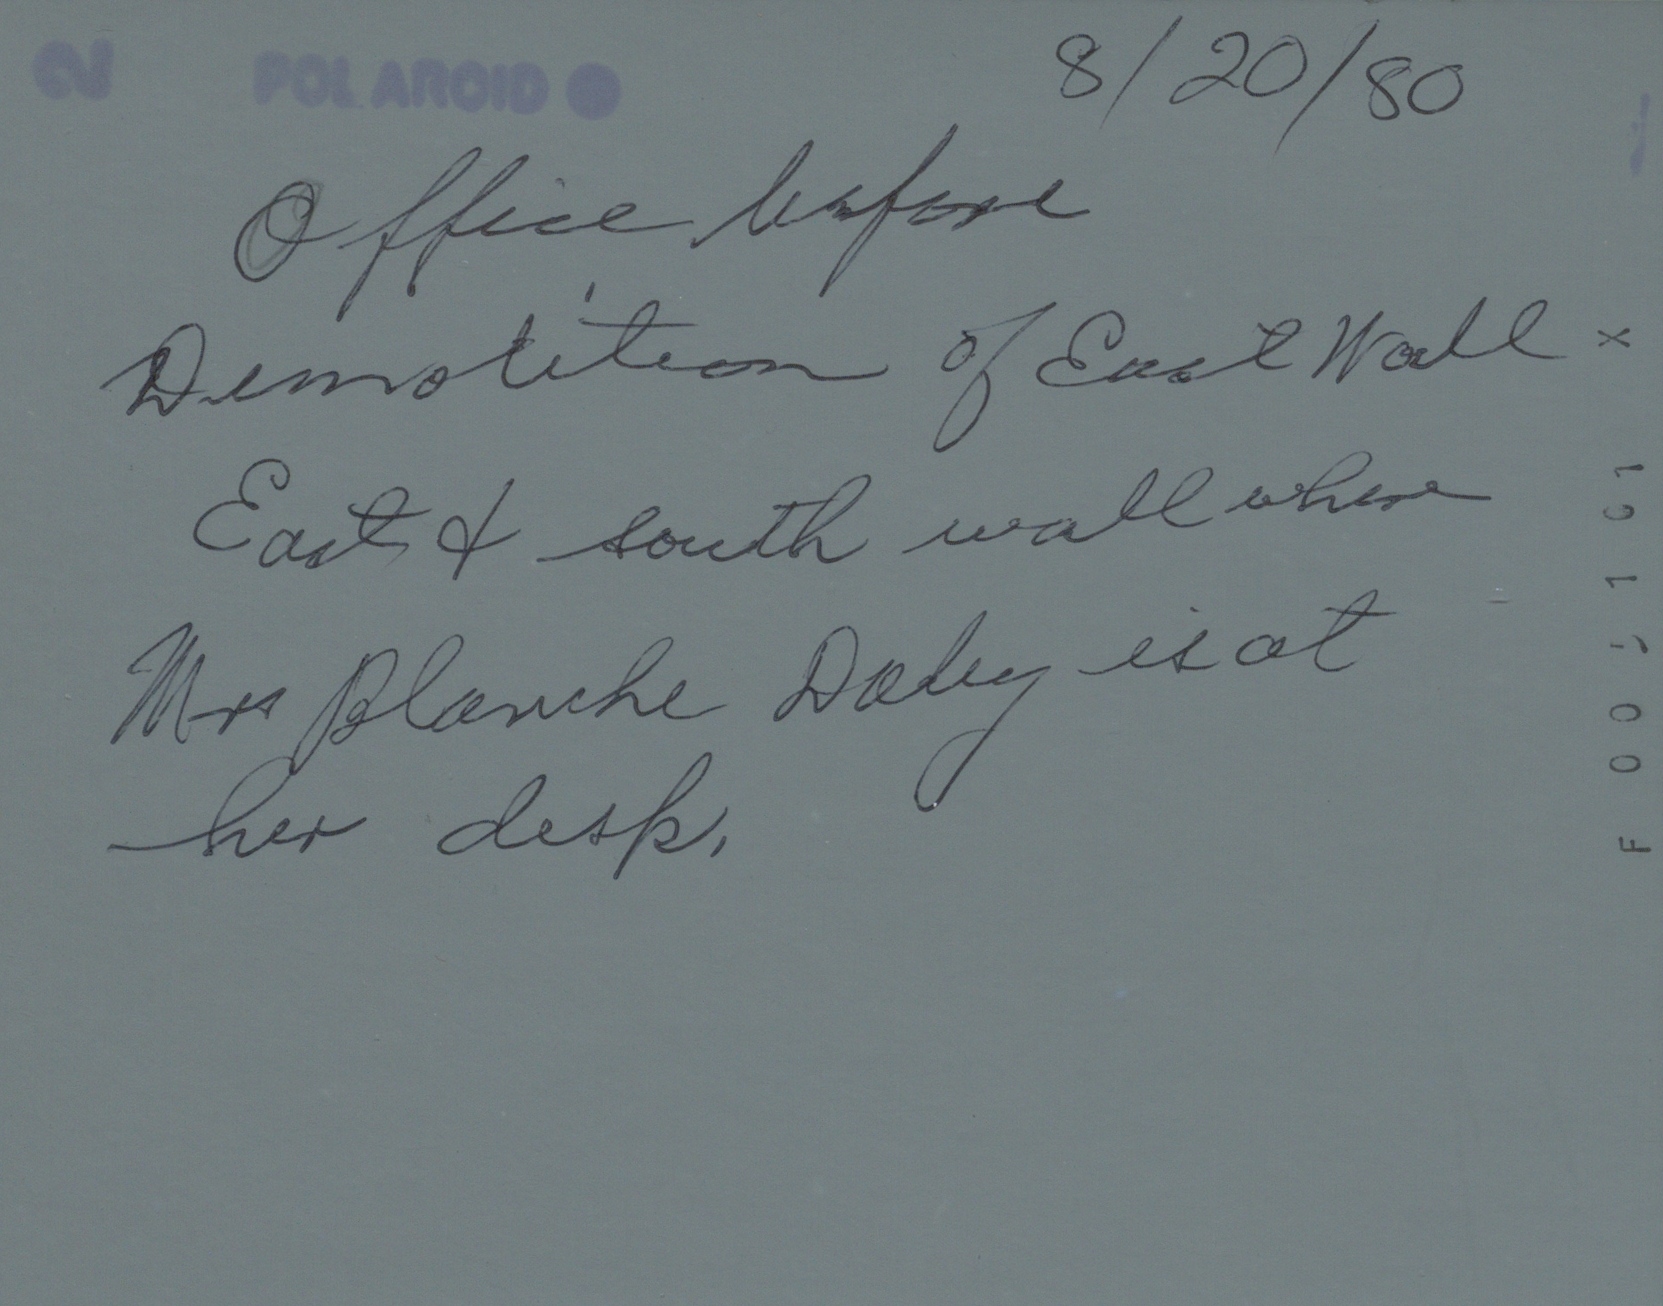 2 POLAROID ●
8/20/80
Office before
Demolition of East Wall
East & south wall where
Mrs Blanche Daley is at
her desk.